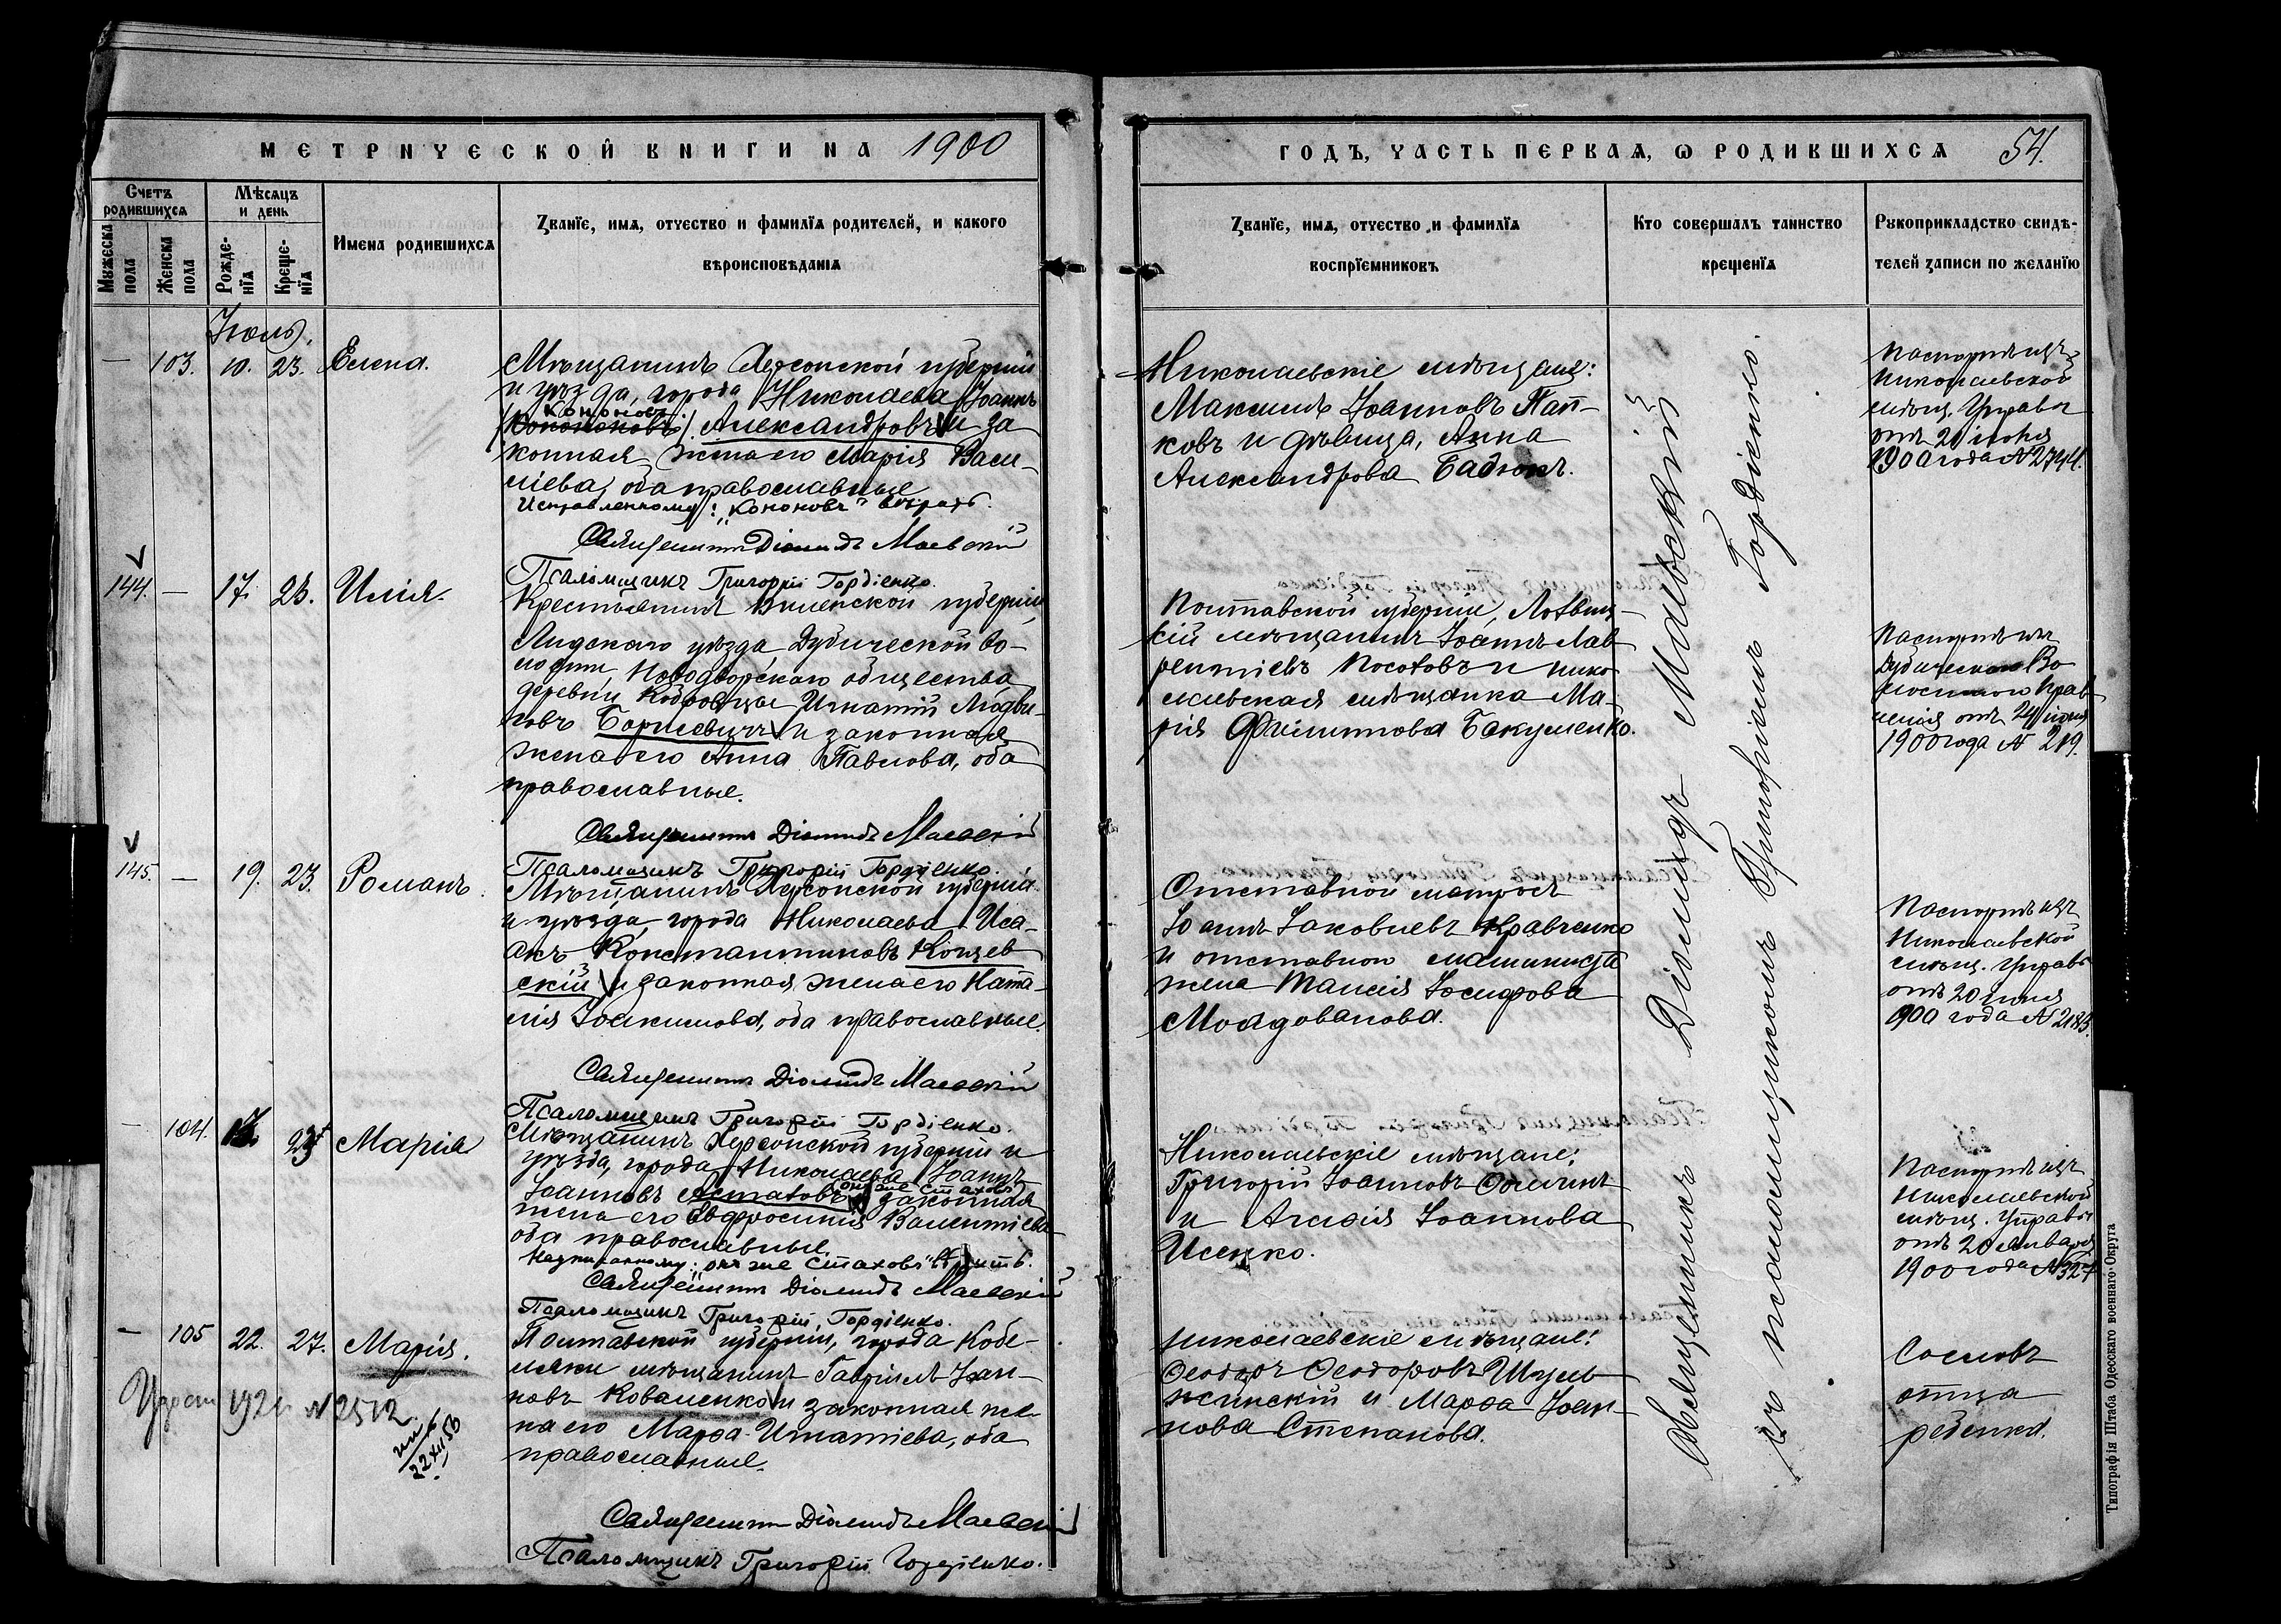 МЕТРИЧЕСКОЙ КНИГИ НА 1900
Счетъ родившихся
Мѣсяцъ и день
Мужеска пола
Женска пола
Рожде-
нія
Креще-
нія
Имена родившихся
Званіе, имя, отчество и фамилія родителей, и какого
вѣроисповѣданія
Іюль.
— 103. 10. 23. Елена.
Мѣщанинъ Херсонской губерніи
и уѣзда, города Николаева Іоаннъ
Кононовъ
Александровъ и за
конная жена его Марія Васи-
ліева, оба православные
Исправленному: „Кононовъ" вѣрить.
Священникъ Діомидъ Маевскій
Псаломщикъ Григорій Гордіенко.
144. — 17. 23. Илія.
Крестьянинъ Виленской губерніи,
Лидскаго уѣзда, Дубической во-
лости, Новодворскаго общества,
деревни Игнатій Людви-
ковъ Борисевичъ и законная
жена его Анна Павлова, оба
православные.
Священникъ Діомидъ Маевскій
Псаломщикъ Григорій Гордіенко.
145. — 19. 23. Романъ.
Мѣщанинъ Херсонской губерніи
и уѣзда, города Николаева Иса-
акъ Константиновъ Коцев
скій и законная жена его Ната-
лія Іоакимова, оба православные.
Священникъ Діомидъ Маевскій
Псаломщикъ Григорій Гордіенко.
— 104. 23 Марія
Мѣщанинъ Херсонской губерніи и
уѣзда, города Николаева Іоаннъ
онъ же Стаховъ
Іоанновъ Астаховъ и законная
жена его Евфросинія Валентіева
оба православные.
Надписанному: „онъ же Стаховъ" вѣрить.
Священникъ Діомидъ Маевскій
Псаломщикъ Григорій Гордіенко.
— 105 22. 27. Марія.
Полтавской губерніи, города Кобе-
ляки мѣщанинъ Гавріилъ Іоан-
новъ Коваленко и законная же-
на его Марфа Игнатіева, оба
православные.
№ 2512
22 XII 53
Священникъ Діомидъ Маевскій
Псаломщикъ Григорій Гордіенко.
ГОДЪ, ЧАСТЬ ПЕРВАЯ, Ѡ РОДИВШИХСЯ 54.
Званіе, имя, отчество и фамилія
воспріемниковъ
Кто совершалъ таинство
крещенія
Рукоприкладство свидѣ-
телей записи по желанію
Николаевскіе мѣщане:
Максимъ Іоанновъ Пап-
ковъ и дѣвица, Анна
Александрова Бадюкъ.
Паспортъ изъ
Николаевской
мѣщ. Управы
отъ 20 іюня
1900 года № 2744.
Полтавской губерніи, Лохвиц-
кій мѣщанинъ Іоаннъ Лав
рентіевъ Посоховъ и нико
лаевская мѣщанка Ма-
рія Филиппова Бакуменко.
Паспортъ изъ
Дубическаго Во
лостного Прав
ленія отъ 24 іюня
1900 года № 219.
Отставной матросъ
Іоаннъ Іаковлевъ Кравченко
и отставного машиниста
жена Таисія Іосифова
Молдованова.
Паспортъ изъ
Николаевской
мѣщ. Управы
отъ 20 іюня
1900 года № 2183.
Николаевскіе мѣщане:
Григорій Іоанновъ
и Агафія Іоаннова
Исенко.
Паспортъ изъ
Николаевской
мѣщ. Управы
отъ 20 Января
1900 года № 327
Николаевскіе мѣщане:
Ѳеодоръ Ѳеодоровъ Шуль
жинскій и Марфа Іоан-
нова Степанова.
Со словъ
отца
ребенка.
Священникъ Діомидъ Маевскій
съ псаломщикомъ Григоріемъ Гордіенко.
Типографія Штаба Одесскаго военнаго Округа